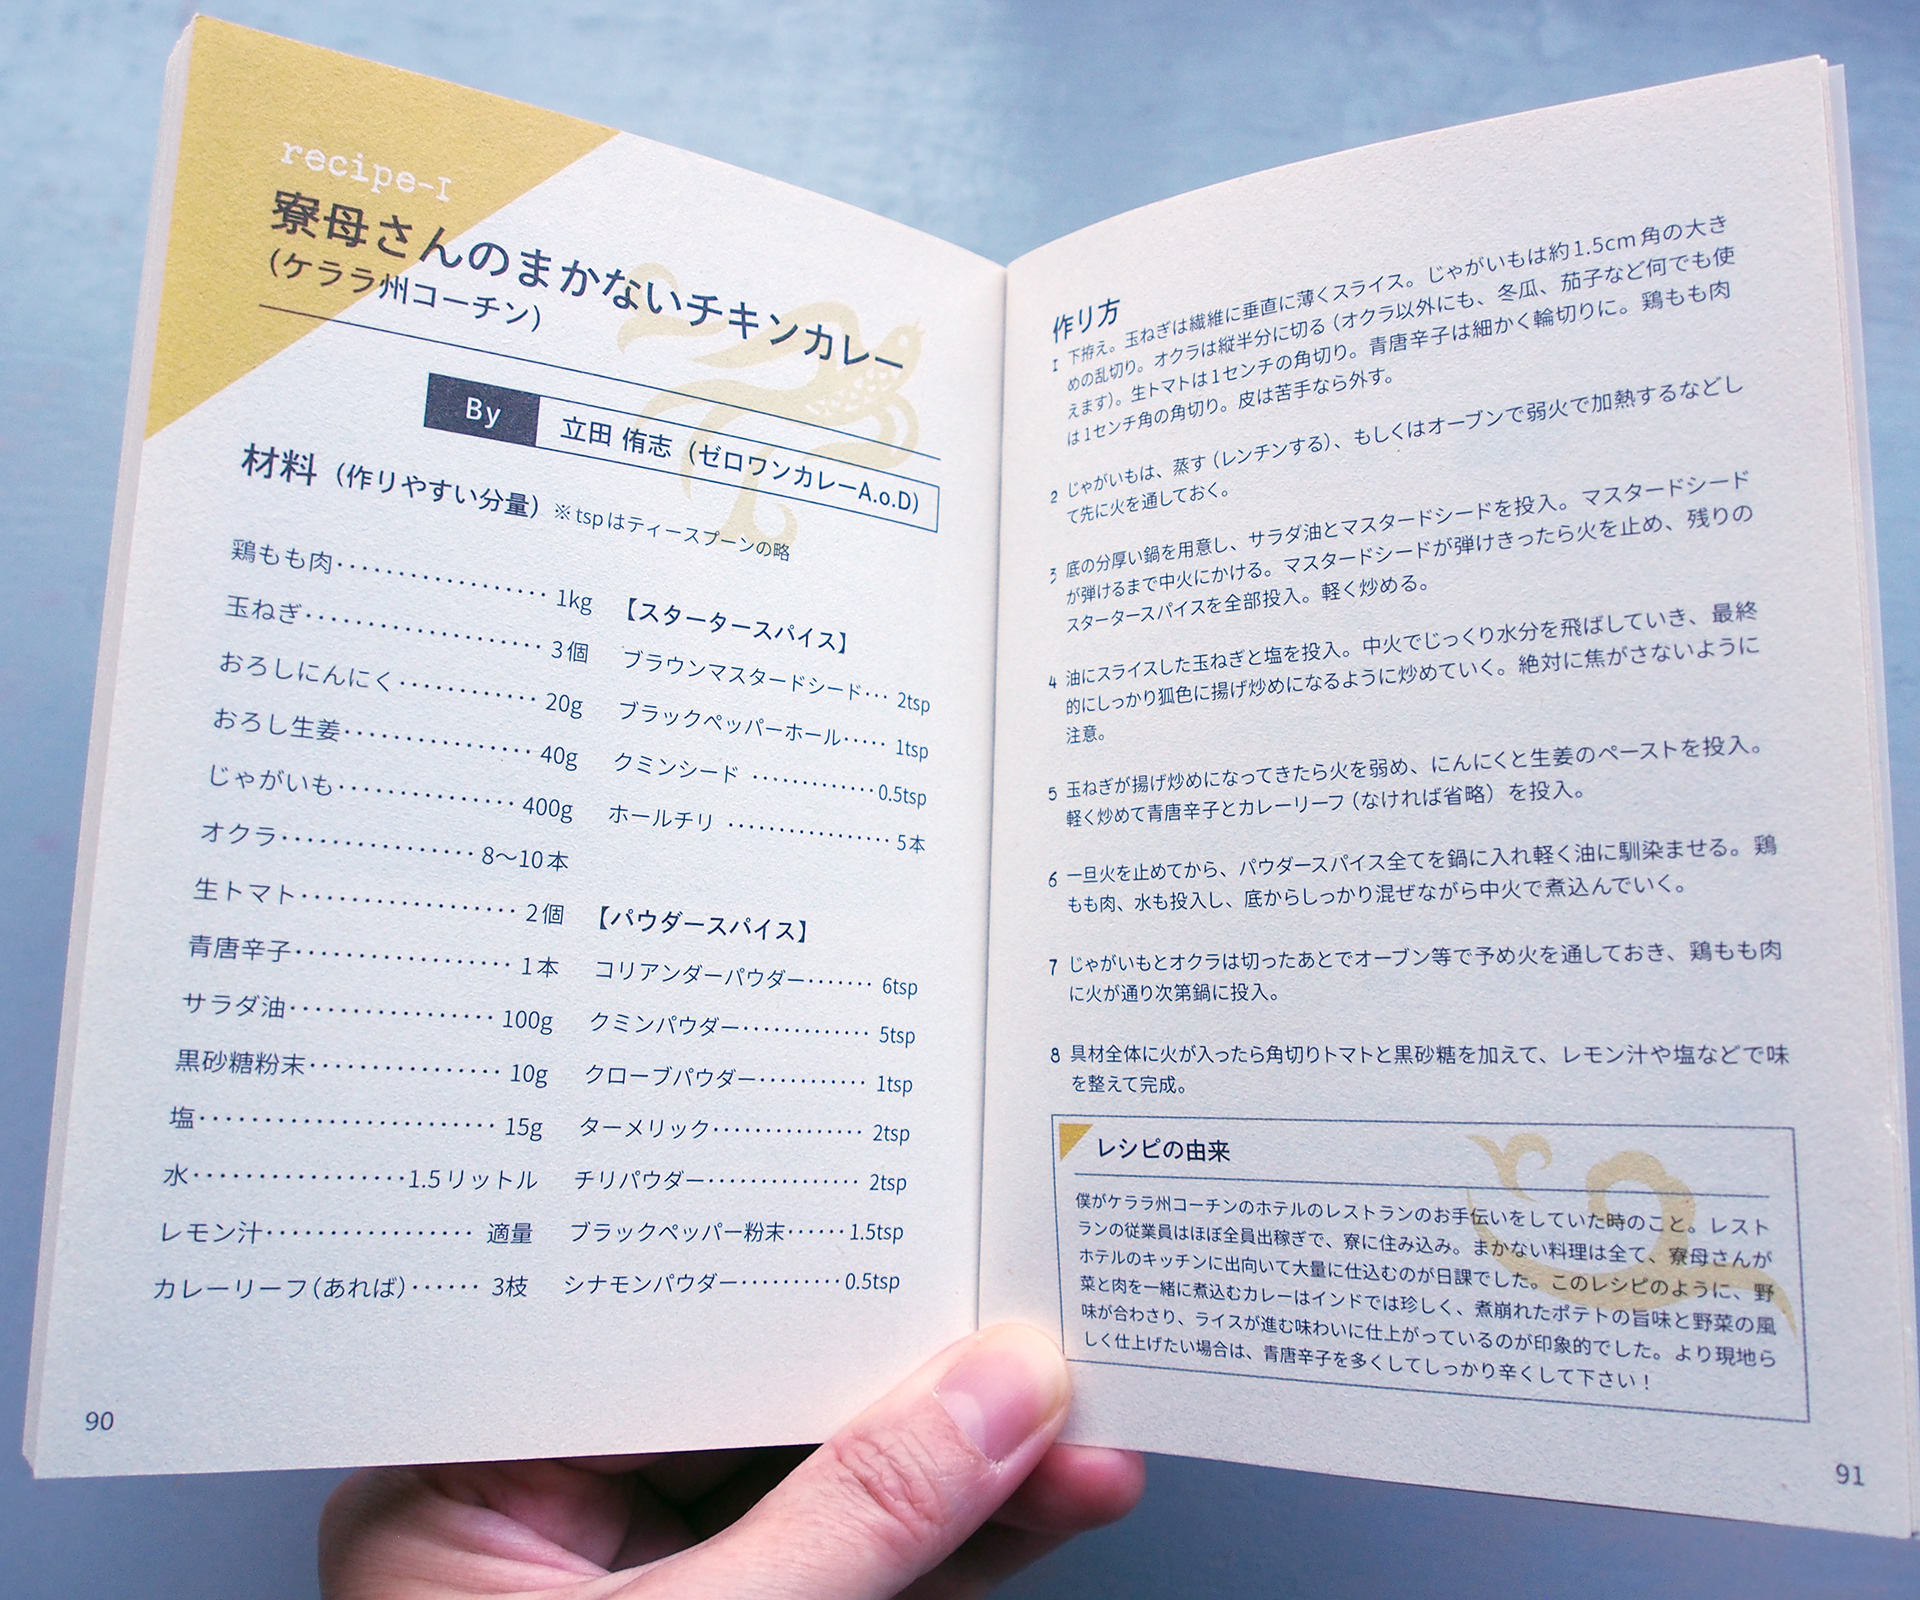 recipe-I
寮母さんのまかないチキンカレー
(ケララ州コーチン)
By 立田 侑志 (ゼロワンカレーA.o.D)
材料 (作りやすい分量) ※tspはティースプーンの略
鶏もも肉・・・・・・・・・・・・・・・・・ 1kg
玉ねぎ・・・・・・・・・・・・・・・・・・・ 3個
おろしにんにく・・・・・・・・・・・ 20g
おろし生姜・・・・・・・・・・・・・・・ 40g
じゃがいも・・・・・・・・・・・・・・ 400g
オクラ・・・・・・・・・・・・・・・・ 8〜10本
生トマト・・・・・・・・・・・・・・・・・ 2個
青唐辛子・・・・・・・・・・・・・・・・・ 1本
サラダ油・・・・・・・・・・・・・・・・ 100g
黒砂糖粉末・・・・・・・・・・・・・・・ 10g
塩・・・・・・・・・・・・・・・・・・・・・・・ 15g
水・・・・・・・・・・・・・・・・・1.5リットル
レモン汁・・・・・・・・・・・・・・・・ 適量
カレーリーフ(あれば)・・・・・・ 3枝
【スタータースパイス】
ブラウンマスタードシード・・・ 2tsp
ブラックペッパーホール・・・・・ 1tsp
クミンシード ・・・・・・・・・・・・0.5tsp
ホールチリ ・・・・・・・・・・・・・・・・・ 5本
【パウダースパイス】
コリアンダーパウダー・・・・・・・ 6tsp
クミンパウダー・・・・・・・・・・・・ 5tsp
クローブパウダー・・・・・・・・・・ 1tsp
ターメリック・・・・・・・・・・・・・・ 2tsp
チリパウダー・・・・・・・・・・・・・・ 2tsp
ブラックペッパー粉末・・・・・・1.5tsp
シナモンパウダー・・・・・・・・・・0.5tsp
90
作り方
1 下拵え。玉ねぎは繊維に垂直に薄くスライス。じゃがいもは約1.5cm角の大き
めの乱切り。オクラは縦半分に切る(オクラ以外にも、冬瓜、茄子など何でも使
えます)。生トマトは1センチの角切り。青唐辛子は細かく輪切りに。鶏もも肉
は1センチ角の角切り。皮は苦手なら外す。
2 じゃがいもは、蒸す(レンチンする)、もしくはオーブンで弱火で加熱するなどし
て先に火を通しておく。
3 底の分厚い鍋を用意し、サラダ油とマスタードシードを投入。マスタードシード
が弾けるまで中火にかける。マスタードシードが弾けきったら火を止め、残りの
スタータースパイスを全部投入。軽く炒める。
4 油にスライスした玉ねぎと塩を投入。中火でじっくり水分を飛ばしていき、最終
的にしっかり狐色に揚げ炒めになるように炒めていく。絶対に焦がさないように
注意。
5 玉ねぎが揚げ炒めになってきたら火を弱め、にんにくと生姜のペーストを投入。
軽く炒めて青唐辛子とカレーリーフ(なければ省略)を投入。
6 一旦火を止めてから、パウダースパイス全てを鍋に入れ軽く油に馴染ませる。鶏
もも肉、水も投入し、底からしっかり混ぜながら中火で煮込んでいく。
7 じゃがいもとオクラは切ったあとでオーブン等で予め火を通しておき、鶏もも肉
に火が通り次第鍋に投入。
8 具材全体に火が入ったら角切りトマトと黒砂糖を加えて、レモン汁や塩などで味
を整えて完成。
レシピの由来
僕がケララ州コーチンのホテルのレストランのお手伝いをしていた時のこと。レスト
ランの従業員はほぼ全員出稼ぎで、寮に住み込み。まかない料理は全て、寮母さんが
ホテルのキッチンに出向いて大量に仕込むのが日課でした。このレシピのように、野
菜と肉を一緒に煮込むカレーはインドでは珍しく、煮崩れたポテトの旨味と野菜の風
味が合わさり、ライスが進む味わいに仕上がっているのが印象的でした。より現地ら
しく仕上げたい場合は、青唐辛子を多くしてしっかり辛くして下さい！
91